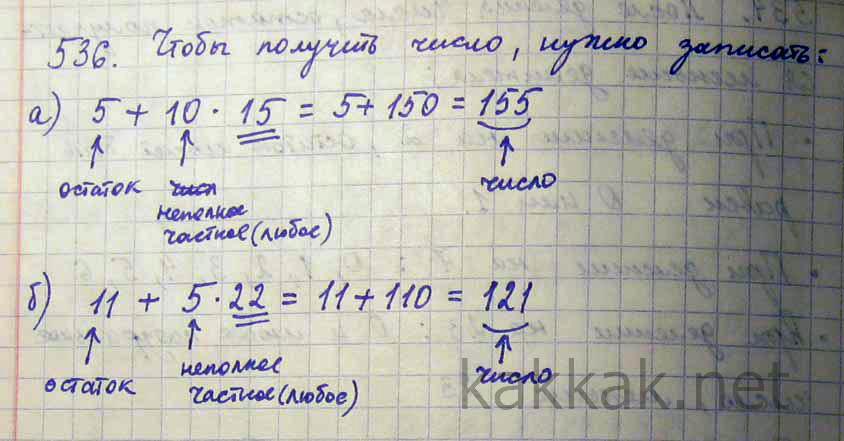 536. Чтобы получить число, нужно записать:
а) 5 + 10 · 15 = 5 + 150 = 155
остаток неполное число
частное (любое)
б) 11 + 5 · 22 = 11 + 110 = 121
остаток неполное число
частное (любое)
kakkak.net